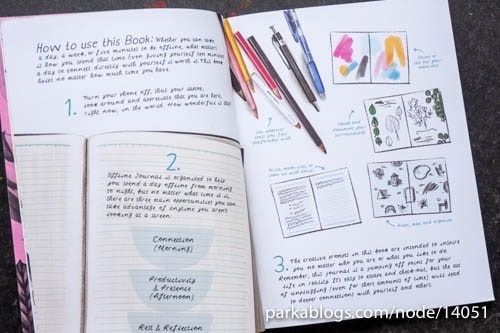 How to use this Book: Whether you can take
a day, a week, or five minutes to be offline, what matters
is how you spend that time. Even giving yourself ten minutes
a day to connect directly with yourself is worth it. This book
helps no matter how much time you have.
1. Turn your phone off, shut your laptop,
look around and appreciate that you are here,
right now, in the world. How wonderful is that
2.
Offline Journal is organized to help
you spend a day offline from morning
to night, but no matter what time it is,
there are three main opportunities you can
take advantage of anytime you aren't
looking at a screen:
Connection
(Morning)
Productivity
& Presence
(Afternoon)
Rest & Reflection
Use whatever
tools you feel
comfortable with
Sketch and
document your
surroundings
3. The creative prompts in this book are intended to inspire
you no matter who you are or what you like to do.
Remember, this journal is a jumping off point for your
life in reality. It's easy to escape and check-out, but the act
of unplugging (even for short amounts of time) will lead
to deeper connections with yourself and others.
parkablogs.com/node/14051